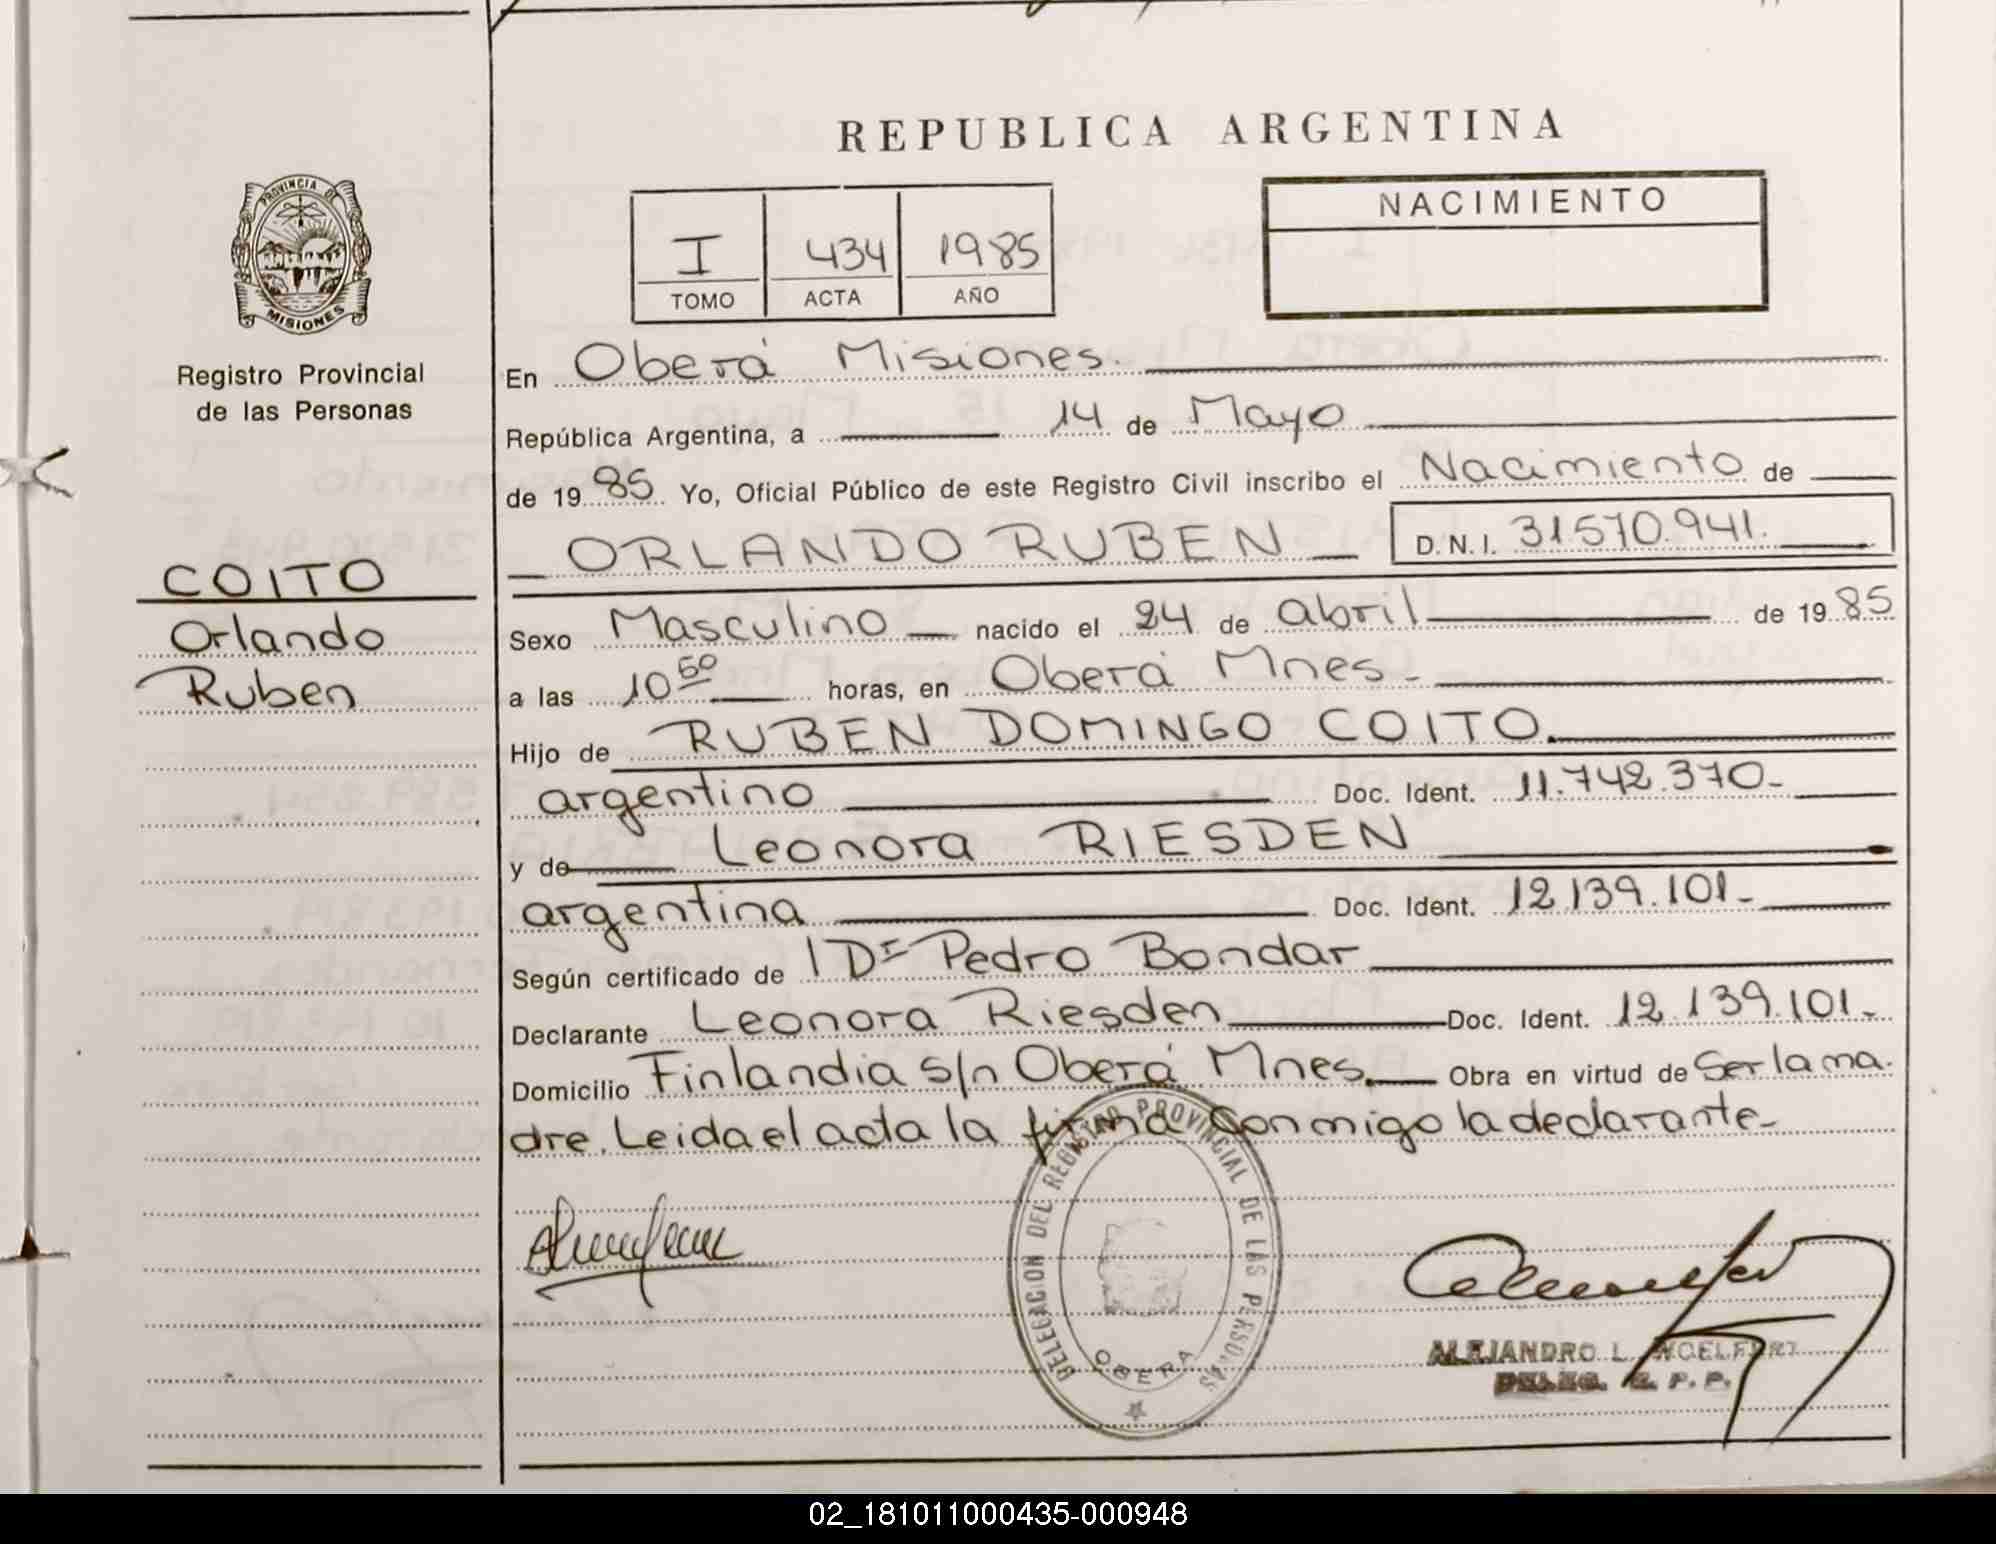 REPUBLICA ARGENTINA
PROVINCIA DE
MISIONES
Registro Provincial
de las Personas
COITO
Orlando
Ruben
I 434 1985
TOMO ACTA AÑO
NACIMIENTO
En Oberá Misiones.
República Argentina, a 14 de Mayo
de 19 85 Yo, Oficial Público de este Registro Civil inscribo el Nacimiento de
ORLANDO RUBEN D.N.I. 31570.941.
Sexo Masculino nacido el 24 de abril de 19 85
a las 10 50 horas, en Oberá Mnes.
Hijo de RUBEN DOMINGO COITO.
argentino Doc. Ident. 11.742.370-
y de Leonora RIESDEN
argentina Doc. Ident. 12.139.101-
Según certificado de l Dr Pedro Bondar
Declarante Leonora Riesden Doc. Ident. 12.139.101-
Domicilio Finlandia s/n Oberá Mnes. Obra en virtud de Ser la ma.
dre. Leida el acta la firma conmigo la declarante-
DELEGACION DEL REGISTRO PROVINCIAL DE LAS PERSONAS
OBERA
ALEJANDRO L.
DELEG. R. P. P.
02_181011000435-000948